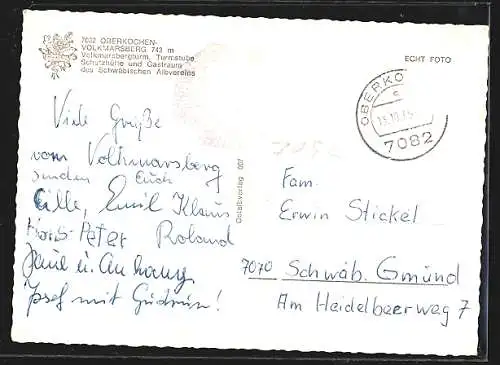 7082 OBERKOCHEN-
VOLKMARSBERG 743 m
Volkmarsbergturm, Turmstube
Schutzhütte und Gastraum
des Schwäbischen Albvereins
ECHT FOTO
OBERKO
c
15.10.75
7082
Viele Grüße
vom Volkmarsberg
senden Euch
Cille, Emil Klaus
Hans-Peter Roland
Paul u. Anhang
Josef mit Gudrun!
Fam.
Erwin Stickel
7070 Schwäb. Gmünd
Am Heidelbeerweg 7